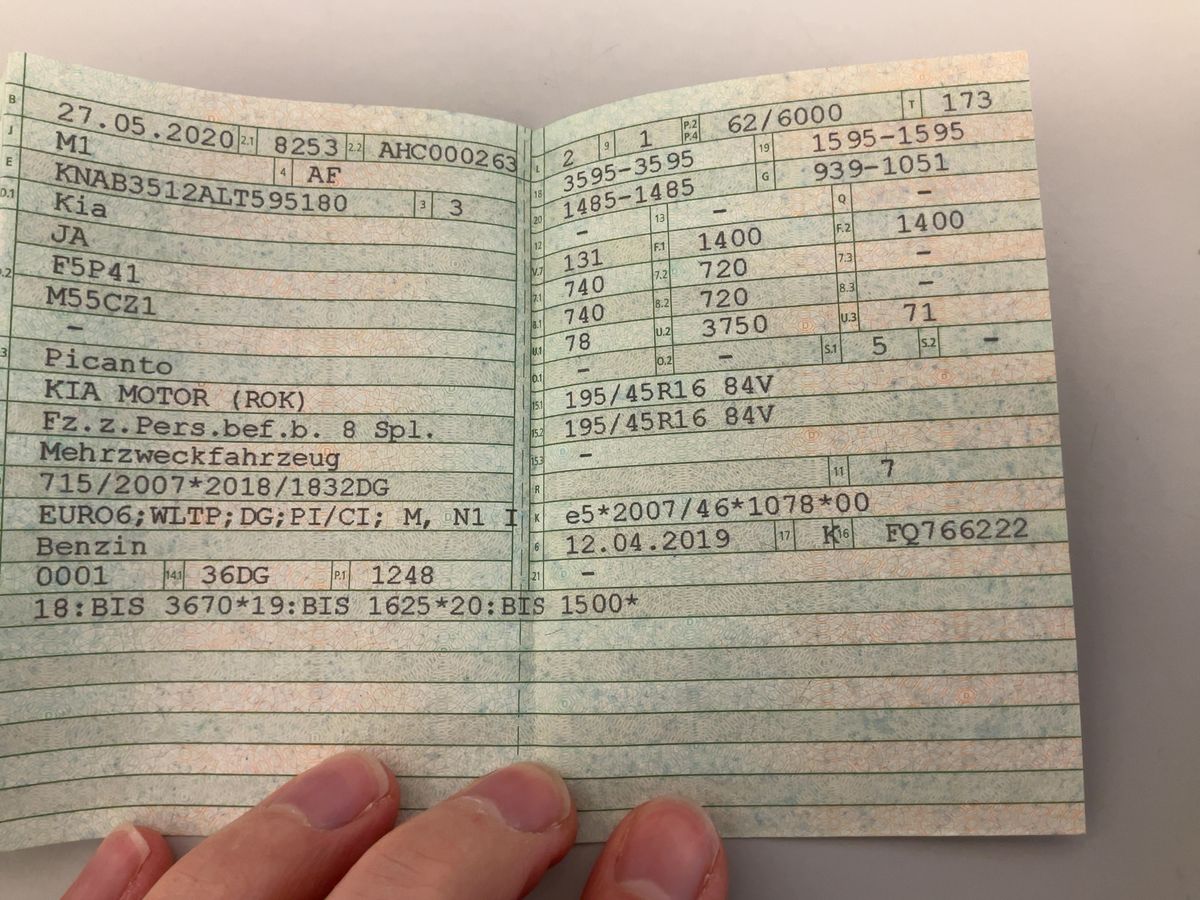 B 27.05.2020 2.1 8253 2.2 AHC000263
J M1 4 AF
E KNAB3512ALT595180 3 3
D.1 Kia
JA
D.2 F5P41
M55CZ1
–
3 Picanto
KIA MOTOR (ROK)
Fz.z.Pers.bef.b. 8 Spl.
Mehrzweckfahrzeug
715/2007*2018/1832DG
EURO6;WLTP;DG;PI/CI; M, N1 I
Benzin
0001 14.1 36DG P.1 1248
L 2 9 1 P.2 P.4 62/6000 T 173
18 3595-3595 19 1595-1595
20 1485-1485 G 939-1051
12 – 13 – Q –
V.7 131 F.1 1400 F.2 1400
7.1 740 7.2 720 7.3 –
8.1 740 8.2 720 8.3 –
U.1 78 U.2 3750 U.3 71
O.1 – O.2 – S.1 5 S.2 –
15.1 195/45R16 84V
15.2 195/45R16 84V
15.3 –
R 11 7
K e5*2007/46*1078*00
6 12.04.2019 17 K 16 FQ766222
21 –
18:BIS 3670*19:BIS 1625*20:BIS 1500*